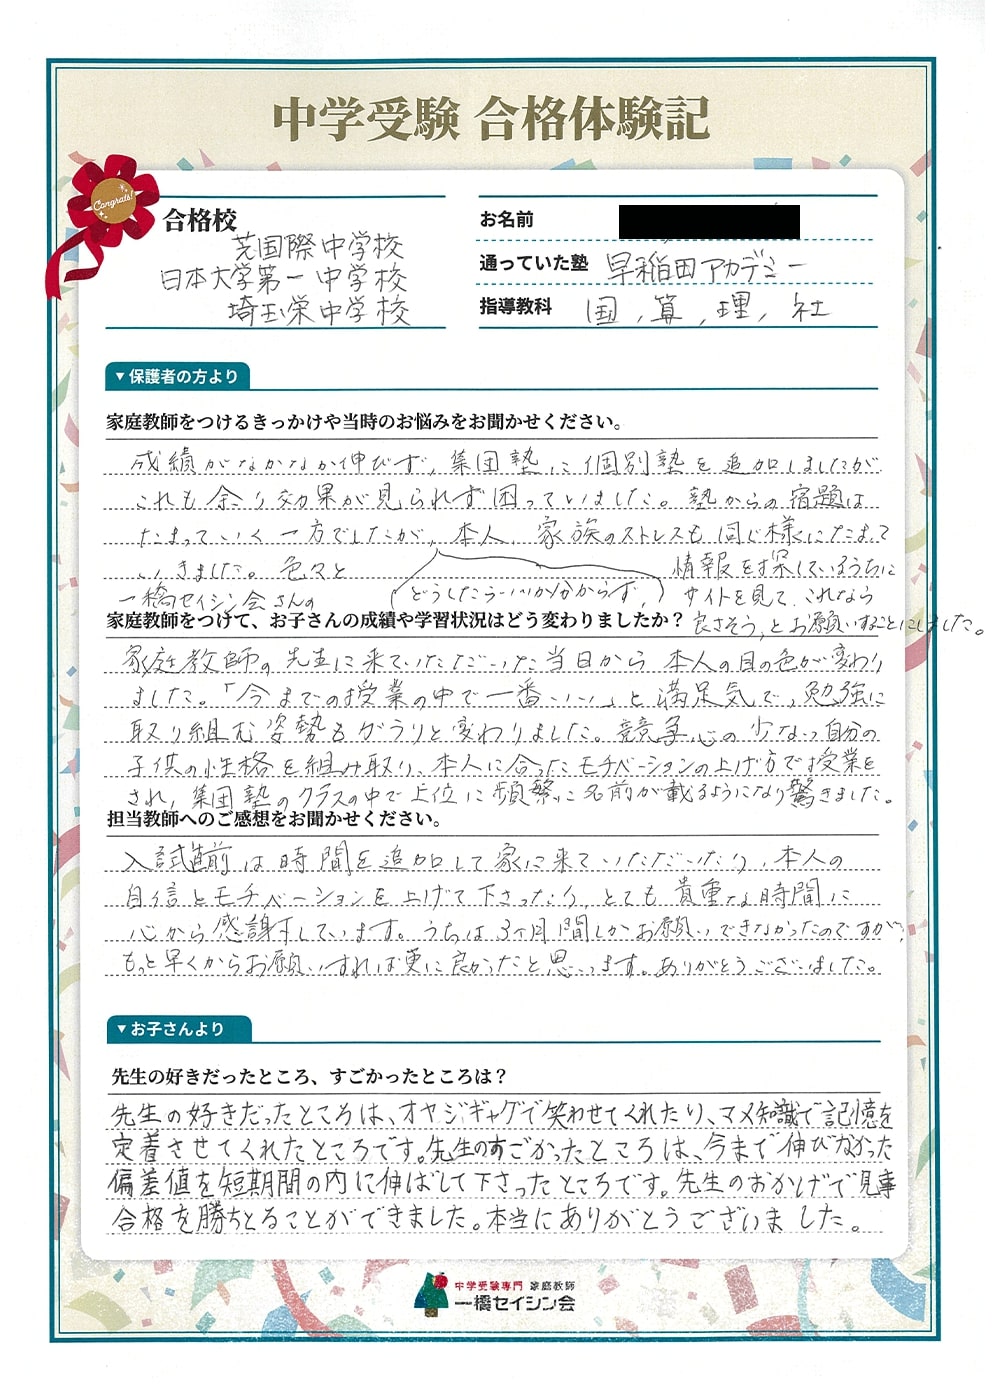 中学受験 合格体験記
Congrats!
合格校
芝国際中学校
日本大学第一中学校
埼玉栄中学校
お名前
通っていた塾 早稲田アカデミー
指導教科 国, 算, 理, 社
▼保護者の方より
家庭教師をつけるきっかけや当時のお悩みをお聞かせください。
成績がなかなか伸びず、集団塾に個別塾を追加しましたが
これも余り効果が見られず困っていました。塾からの宿題は
たまっていく一方でしたが、本人、家族のストレスも同じ様にたまって
いきました。色々と 情報を探しているうちに
(どうしたらいいか分からず、)
一橋セイシン会さんの サイトを見て、これなら
良さそう、とお願いすることにしました。
家庭教師をつけて、お子さんの成績や学習状況はどう変わりましたか？
家庭教師の先生に来ていただいた当日から本人の目の色が変わり
ました。「今までの授業の中で一番いい」と満足気で、勉強に
取り組む姿勢もがらりと変わりました。競争心の少ない自分の
子供の性格を組み取り、本人に合ったモチベーションの上げ方で授業を
され、集団塾のクラスの中で上位に頻繁に名前が載るようになり驚きました。
担当教師へのご感想をお聞かせください。
入試直前は時間を追加して家に来ていただいたり、本人の
自信とモチベーションを上げて下さったり、とても貴重な時間に
心から感謝しています。うちは3ヶ月間しかお願いできなかったのですが、
もっと早くからお願いすれば更に良かったと思います。ありがとうございました。
▼お子さんより
先生の好きだったところ、すごかったところは？
先生の好きだったところは、オヤジギャグで笑わせてくれたり、マメ知識で記憶を
定着させてくれたところです。先生のすごかったところは、今まで伸びなかった
偏差値を短期間の内に伸ばして下さったところです。先生のおかげで見事
合格を勝ちとることができました。本当にありがとうございました。
中学受験専門 家庭教師
一橋セイシン会